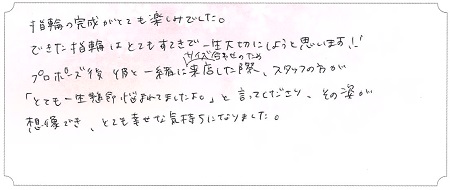 指輪の完成がとても楽しみでした。
できた指輪はとてもすてきで一生大切にしようと思います!!
サイズ合わせのため
プロポーズ後 彼と一緒に来店した際、スタッフの方が
「とても一生懸命悩まれてましたよ。」と言ってくださり、その姿が
想像でき、とても幸せな気持ちになりました。